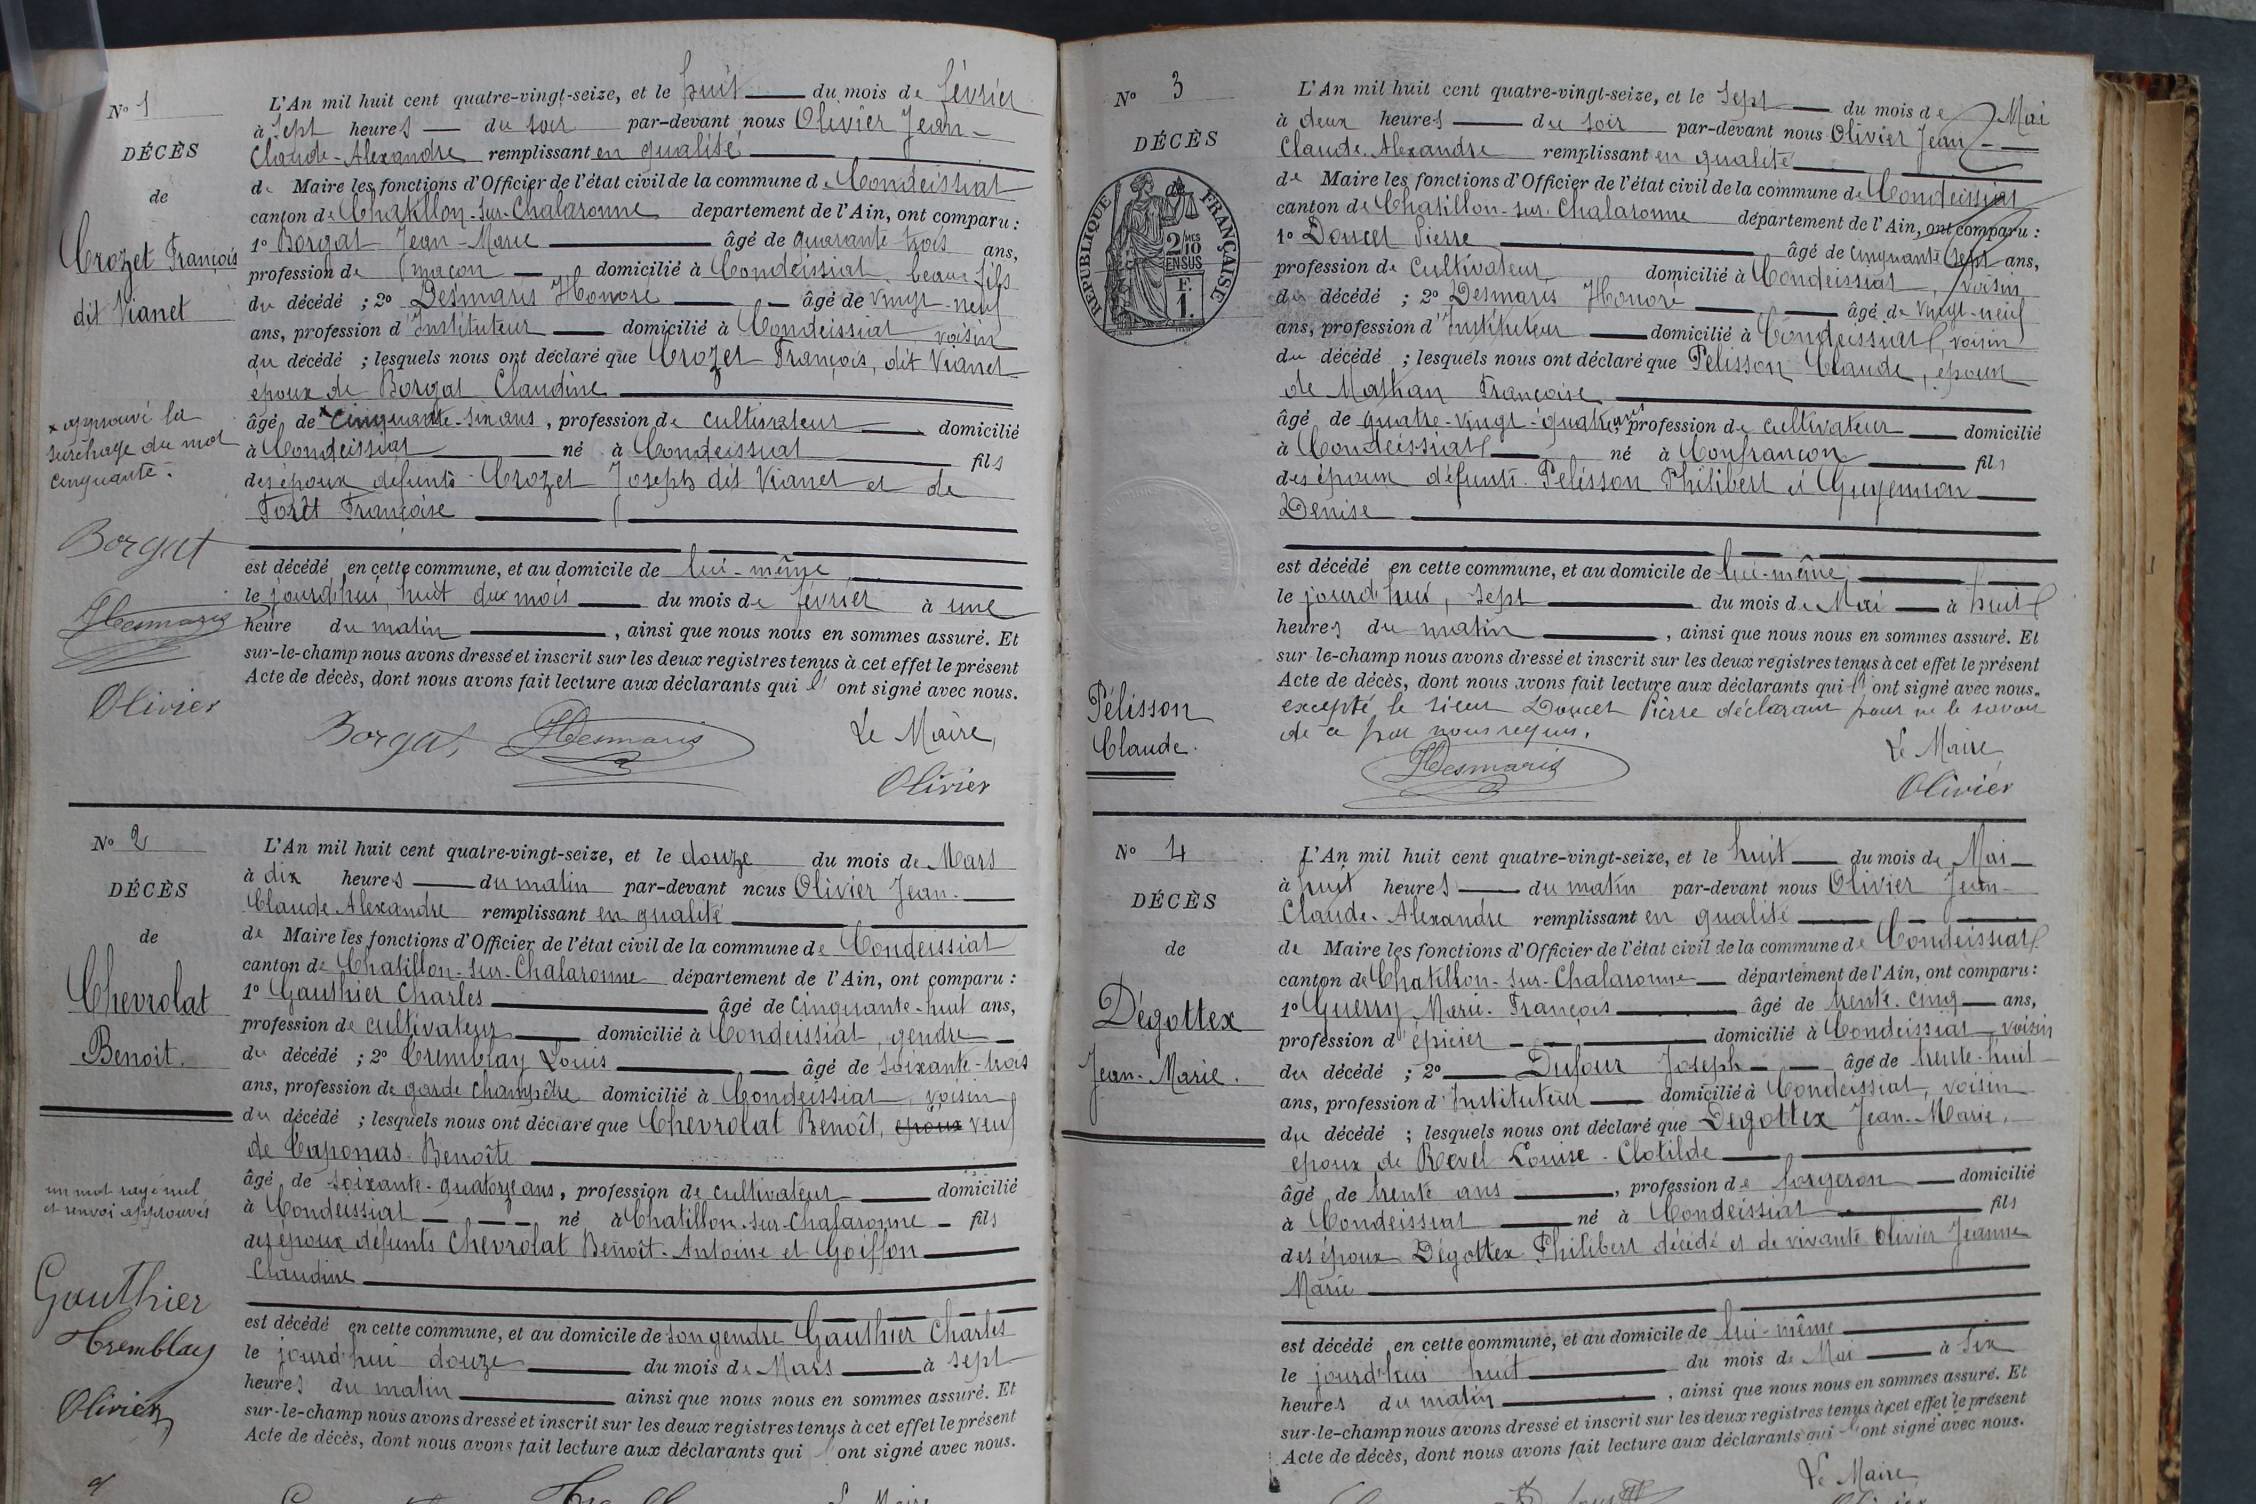 N° 1
DÉCÈS
de
Crozet François
dit Vianet
x approuvé la
surchage du mot
cinquante.
Borgat
HDesmaris
Olivier
L'An mil huit cent quatre-vingt-seize, et le huit du mois de février
à sept heures du soir par-devant nous Olivier Jean-
Claude-Alexandre remplissant en qualité
de Maire les fonctions d'Officier de l'état civil de la commune de Condeissiat
canton de Chatillon-sur-Chalaronne département de l'Ain, ont comparu :
1° Borgat Jean-Marie âgé de quarante-trois ans,
profession de maçon domicilié à Condeissiat, beau-fils
du décédé ; 2° Desmaris Honoré âgé de vingt-neuf
ans, profession d'Instituteur domicilié à Condeissiat voisin
du décédé ; lesquels nous ont déclaré que Crozet François, dit Vianet
époux de Borgat Claudine
âgé de x cinquante-six ans, profession de cultivateur domicilié
à Condeissiat né à Condeissiat fils
des époux défunts Crozet Joseph dit Vianet et de
Forêt Françoise
est décédé en cette commune, et au domicile de lui-même
le jourd'hui, huit du mois du mois de février à une
heure du matin, ainsi que nous nous en sommes assuré. Et
sur-le-champ nous avons dressé et inscrit sur les deux registres tenus à cet effet le présent
Acte de décès, dont nous avons fait lecture aux déclarants qui l' ont signé avec nous.
Borgat HDesmaris Le Maire,
Olivier
N° 2
DÉCÈS
de
Chevrolat
Benoit.
un mot rayé nul
et renvoi approuvés
Gauthier
Tremblay
Olivier
L'An mil huit cent quatre-vingt-seize, et le douze du mois de Mars
à dix heures du matin par-devant nous Olivier Jean-
Claude Alexandre remplissant en qualité
de Maire les fonctions d'Officier de l'état civil de la commune de Condeissiat
canton de Chatillon-sur-Chalaronne département de l'Ain, ont comparu :
1° Gauthier Charles âgé de cinquante-huit ans,
profession de cultivateur domicilié à Condeissiat, gendre
du décédé ; 2° Tremblay Louis âgé de soixante-trois
ans, profession de garde champêtre domicilié à Condeissiat, voisin
du décédé ; lesquels nous ont déclaré que Chevrolat Benoît, époux veuf
de Caponas Benoîte
âgé de soixante-quatorze ans, profession de cultivateur domicilié
à Condeissiat né à Chatillon-sur-Chalaronne fils
des époux défunts Chevrolat Benoît-Antoine et Goiffon
Claudine
est décédé en cette commune, et au domicile de son gendre Gauthier Charles
le jourd'hui douze du mois de Mars à sept
heures du matin ainsi que nous nous en sommes assuré. Et
sur-le-champ nous avons dressé et inscrit sur les deux registres tenus à cet effet le présent
Acte de décès, dont nous avons fait lecture aux déclarants qui l' ont signé avec nous.
Le Maire
N° 3
DÉCÈS
RÉPUBLIQUE FRANÇAISE
2/10
EN SUS
F.
1.
Pélisson
Claude.
L'An mil huit cent quatre-vingt-seize, et le sept du mois de Mai
à deux heures du soir par-devant nous Olivier Jean-
Claude-Alexandre remplissant en qualité
de Maire les fonctions d'Officier de l'état civil de la commune de Condeissiat
canton de Chatillon-sur-Chalaronne département de l'Ain, ont comparu :
1° Doucet Pierre âgé de cinquante-sept ans,
profession de cultivateur domicilié à Condeissiat, voisin
du décédé ; 2° Desmaris Honoré âgé de vingt-neuf
ans, profession d'Instituteur domicilié à Condeissiat, voisin
du décédé ; lesquels nous ont déclaré que Pélisson Claude, époux
de Mathan Françoise
âgé de quatre-vingt-quatre ans, profession de cultivateur domicilié
à Condeissiat né à Confrançon fils
des époux défunts Pélisson Philibert et Guyennon
Denise
est décédé en cette commune, et au domicile de lui-même
le jourd'hui, sept du mois de Mai à huit
heures du matin, ainsi que nous nous en sommes assuré. Et
sur-le-champ nous avons dressé et inscrit sur les deux registres tenus à cet effet le présent
Acte de décès, dont nous avons fait lecture aux déclarants qui l' ont signé avec nous.
excepté le sieur Doucet Pierre déclarant pour ne le savoir
de ce par nous requis.
HDesmaris Le Maire
Olivier
N° 4
DÉCÈS
de
Dégottex
Jean-Marie.
L'An mil huit cent quatre-vingt-seize, et le huit du mois de Mai
à huit heures du matin par-devant nous Olivier Jean-
Claude-Alexandre remplissant en qualité
de Maire les fonctions d'Officier de l'état civil de la commune de Condeissiat
canton de Chatillon-sur-Chalaronne département de l'Ain, ont comparu :
1° Guerry Marie-François âgé de trente-cinq ans,
profession d'épicier domicilié à Condeissiat voisin
du décédé ; 2° Dufour Joseph âgé de trente-huit
ans, profession d'Instituteur domicilié à Condeissiat, voisin
du décédé ; lesquels nous ont déclaré que Dégottex Jean-Marie,
époux de Revel Louise-Clotilde
âgé de trente ans, profession de forgeron domicilié
à Condeissiat né à Condeissiat fils
des époux Dégottex Philibert décédé et de vivante Olivier Jeanne
Marie
est décédé en cette commune, et au domicile de lui-même
le jourd'hui huit du mois de Mai à six
heures du matin, ainsi que nous nous en sommes assuré. Et
sur-le-champ nous avons dressé et inscrit sur les deux registres tenus à cet effet le présent
Acte de décès, dont nous avons fait lecture aux déclarants qui l' ont signé avec nous.
Le Maire